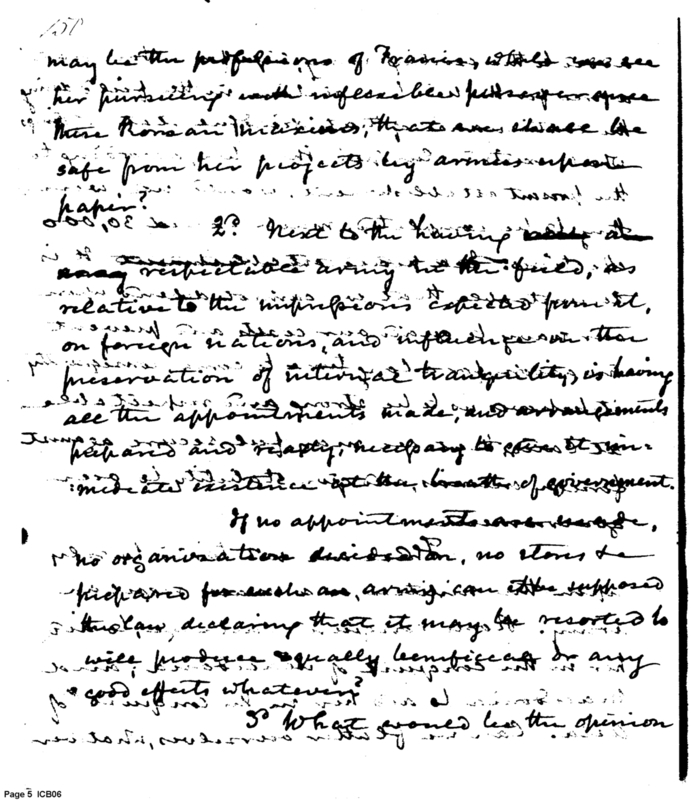 may be the professions of France, while we see
her pursuing with inflexible perseverance
these Roman maxims, that we shall be
safe from her projects by armies upon
paper?
2.^d Next to the having
respectable army in the field, as
relative to the impressions expected from it,
on foreign nations, and influence in the
preservation of internal tranquility, is having
all the appointments made, and arrangements
prepared and ready, necessary to give it im=
:mediate existence at the breath of government.
If no appointments are made,
no organization decided on, no stores &c
prepared for such an army, can it be supposed
the law declaring that it may be resorted to
will produce equally beneficial or any
good effects whatever?
3.^d What would be the opinion
Page 5 ICB06